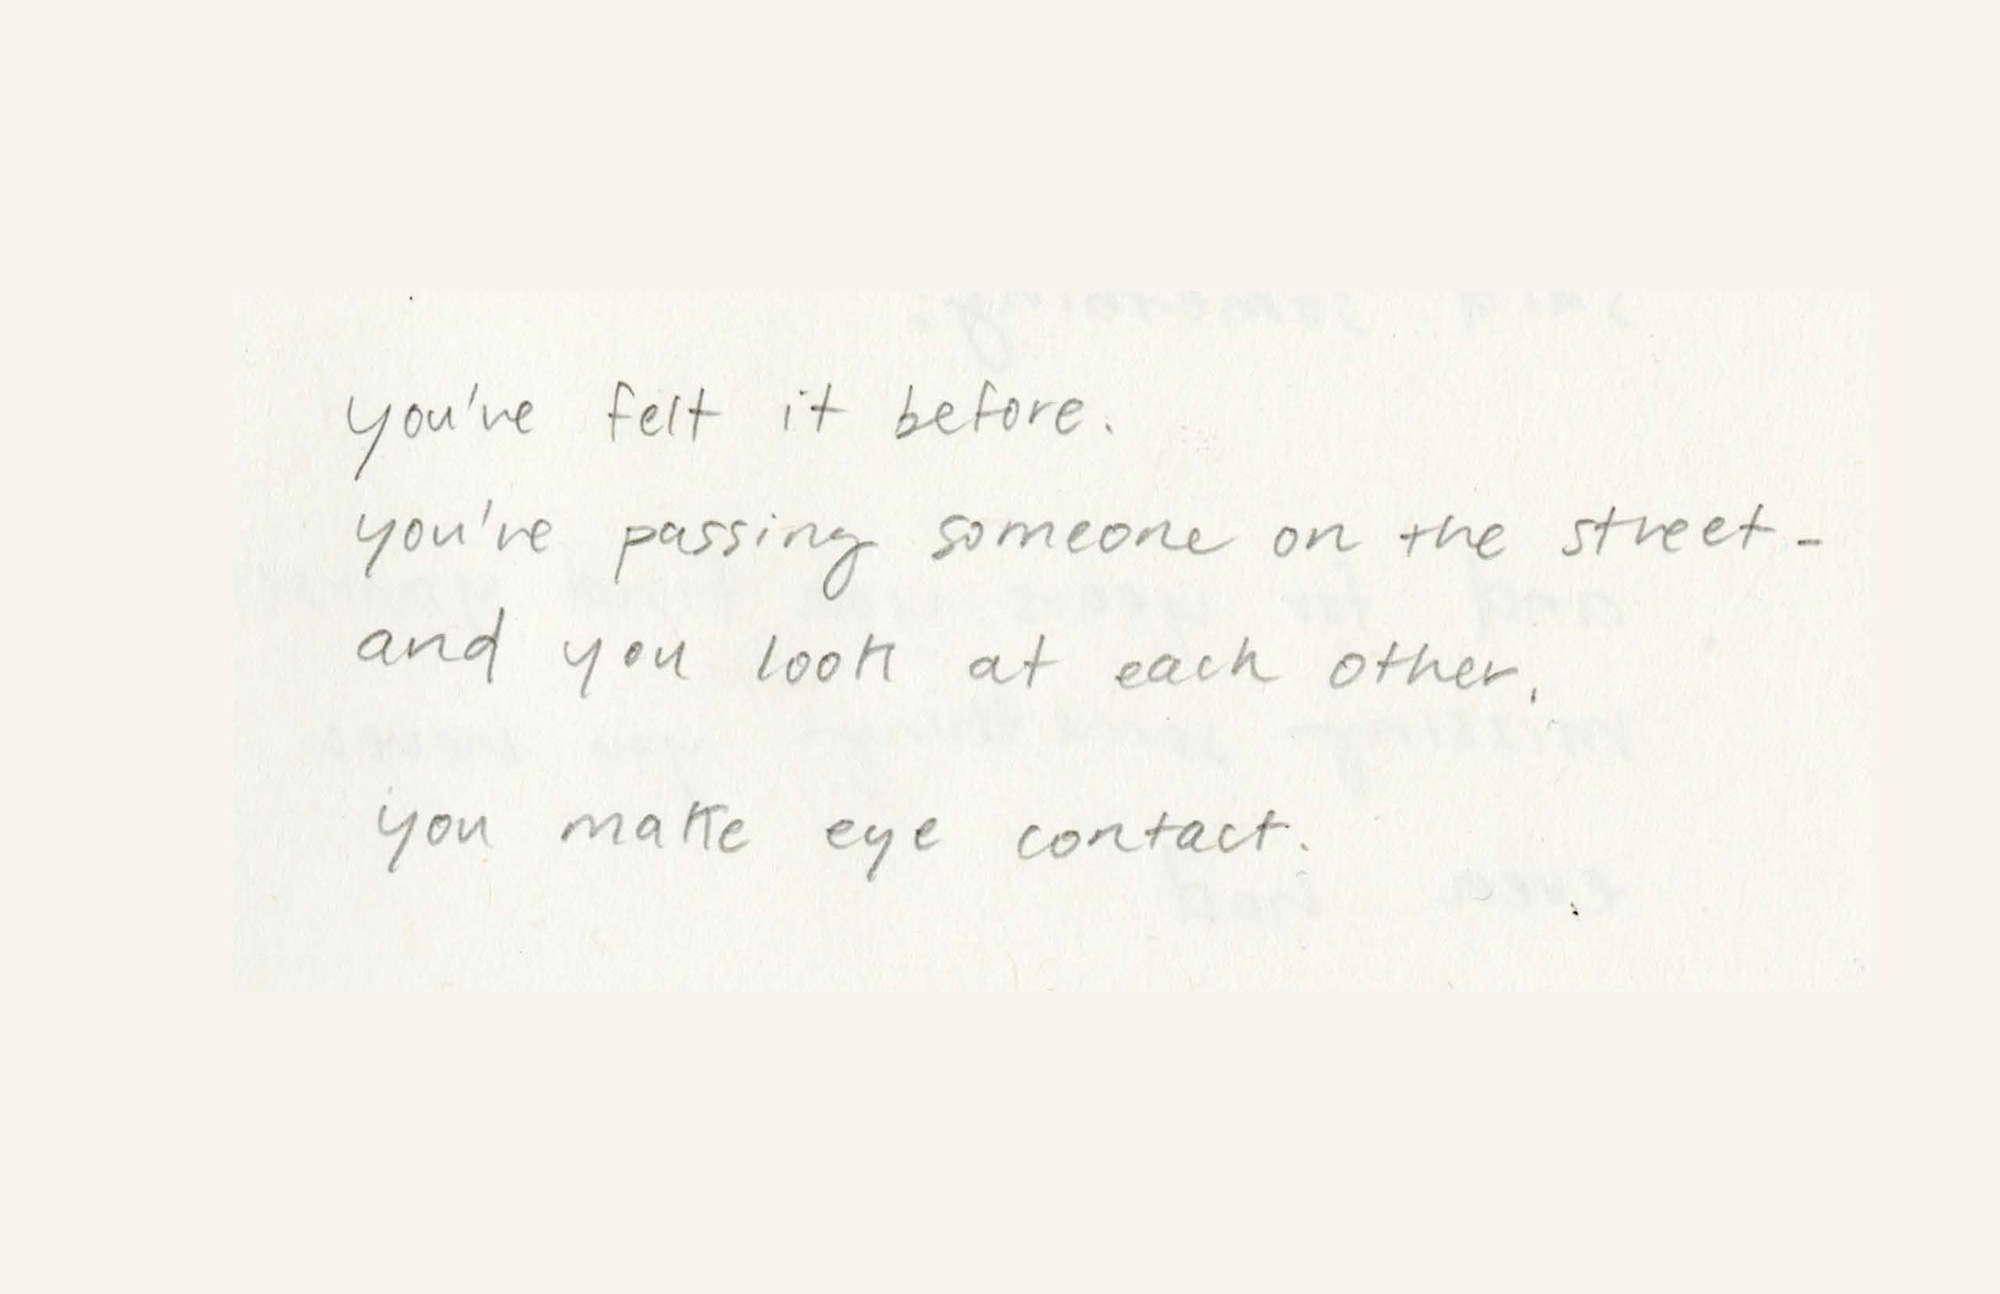 you've felt it before.
you're passing someone on the street-
and you look at each other.
you make eye contact.